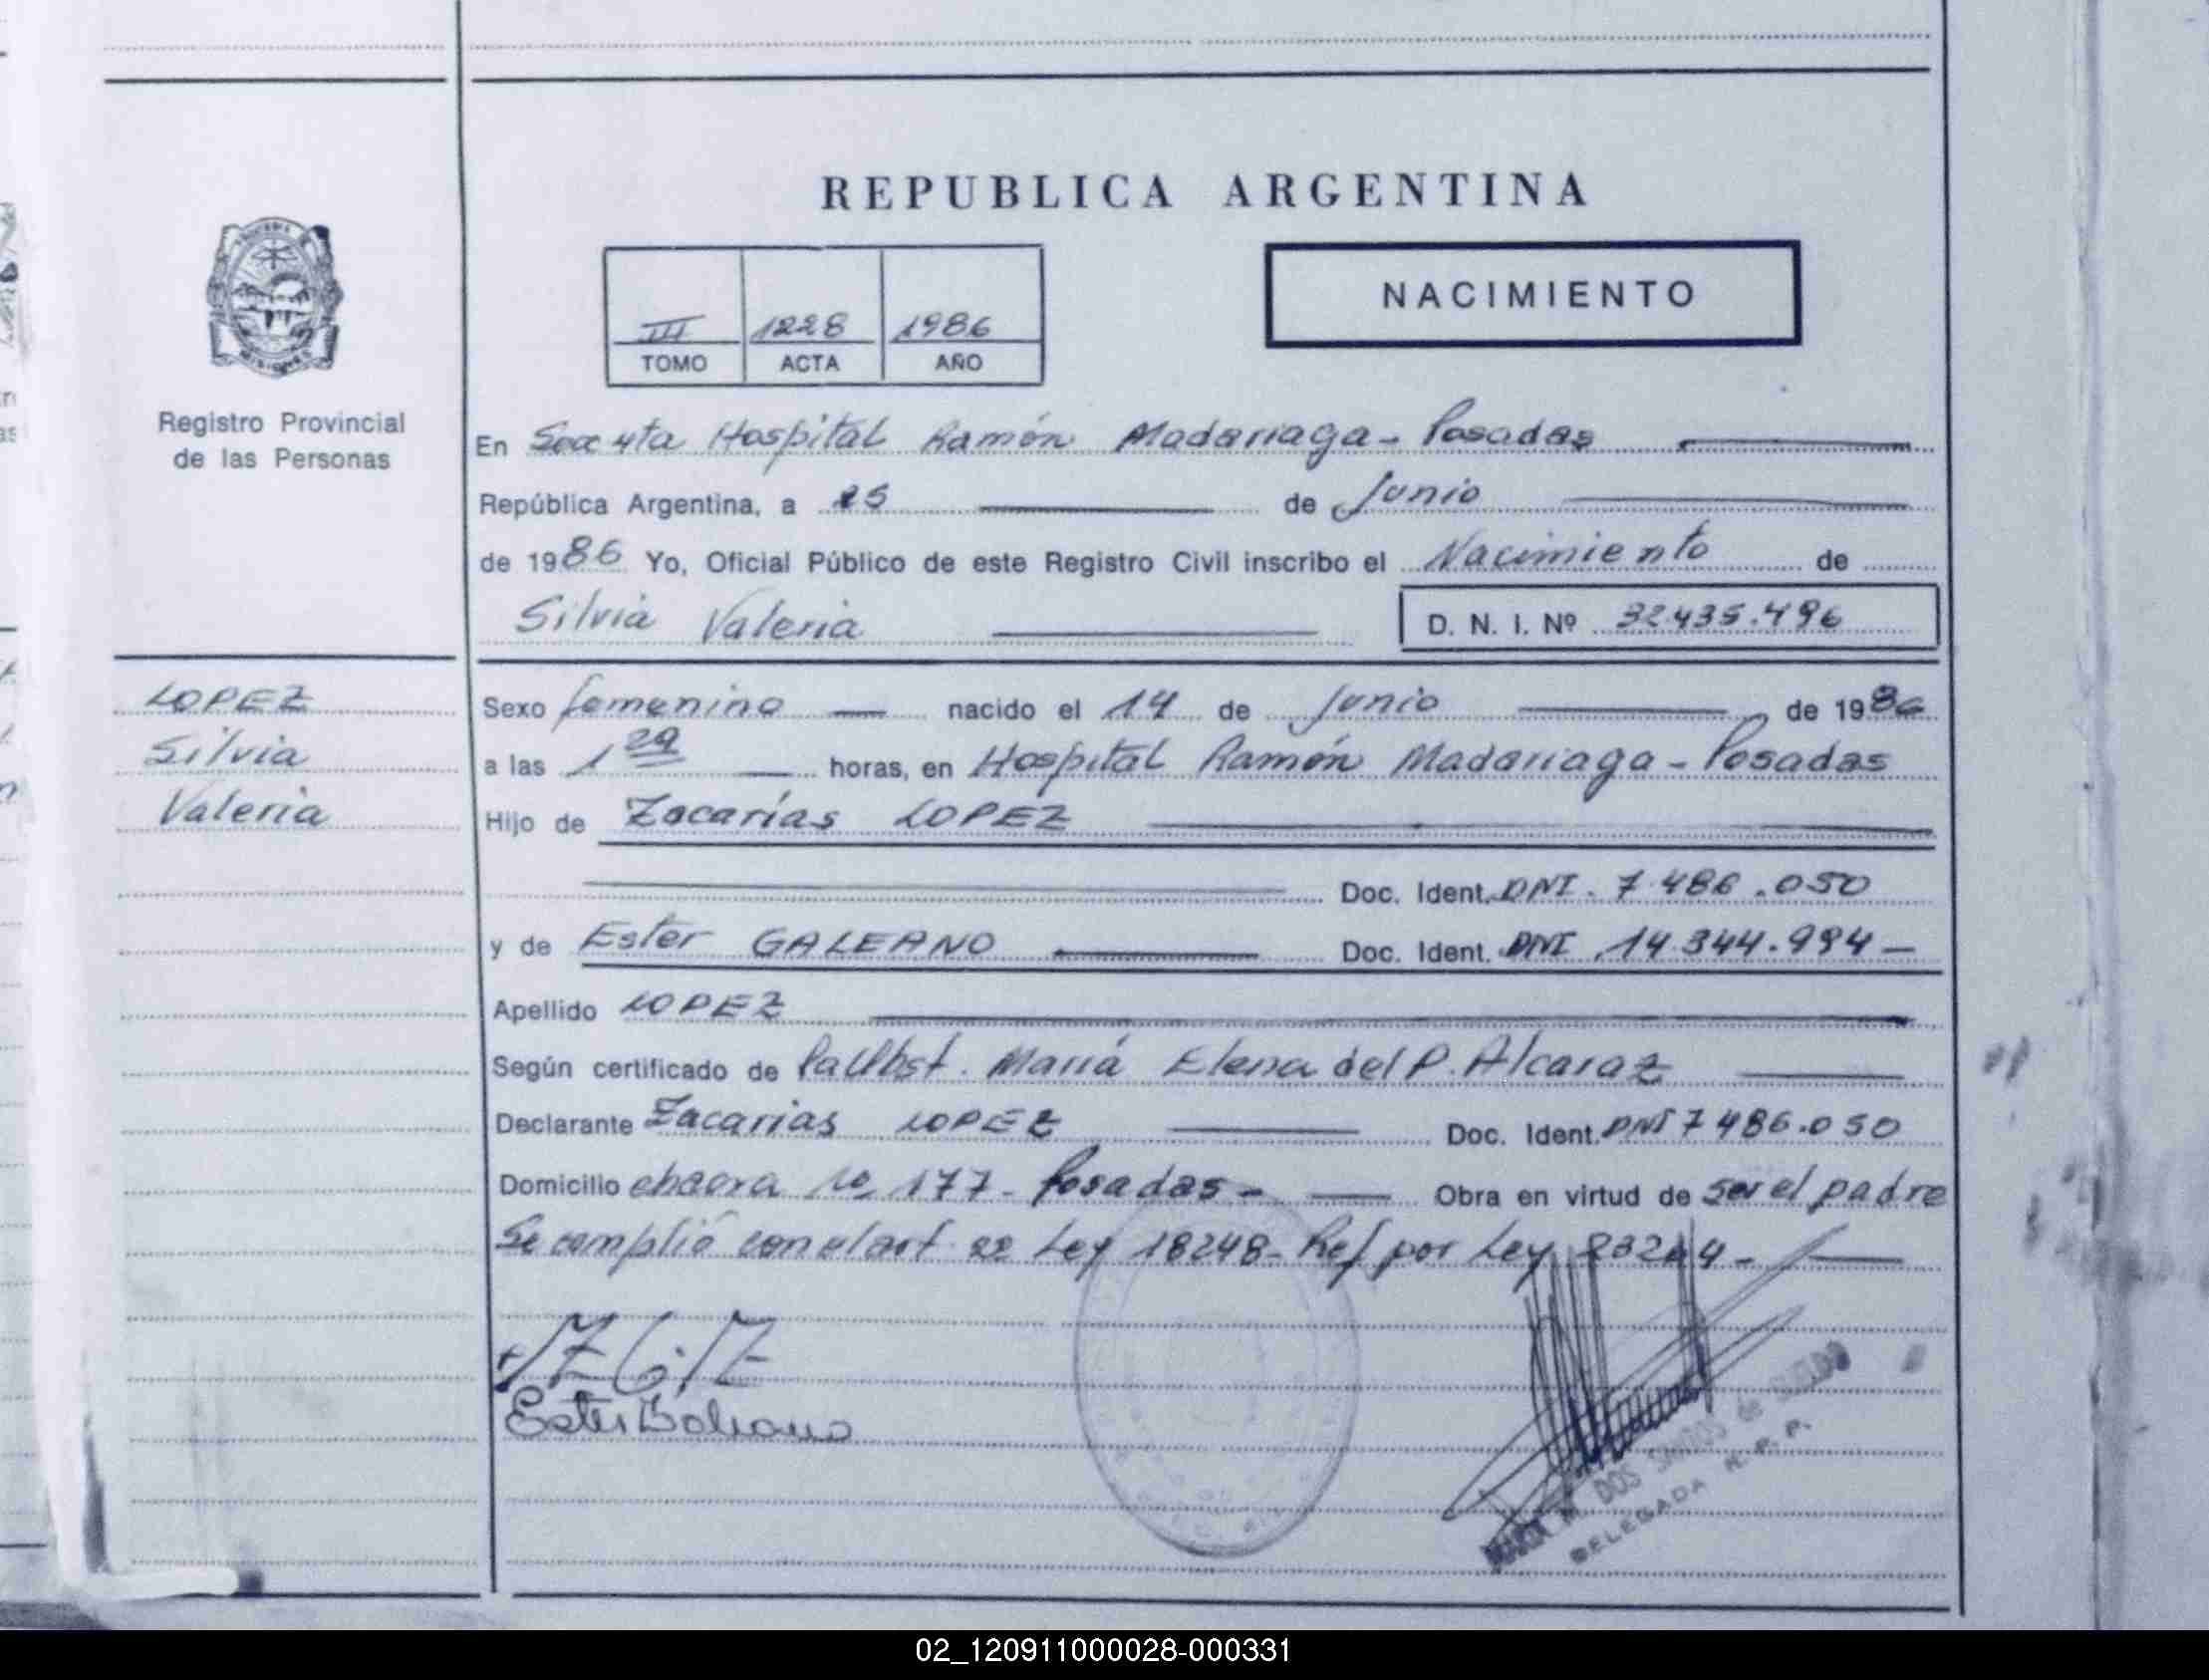 REPUBLICA ARGENTINA
NACIMIENTO
III 1228 1986
TOMO ACTA AÑO
Registro Provincial
de las Personas
En Secc 4ta Hospital Ramón Madariaga - Posadas
República Argentina, a 25 de Junio
de 1986 Yo, Oficial Público de este Registro Civil inscribo el Nacimiento de
Silvia Valeria D. N. I. Nº 32.435.496
LOPEZ
Silvia
Valeria
Sexo femenino nacido el 14 de Junio de 1986
a las 1 29 horas, en Hospital Ramón Madariaga - Posadas
Hijo de Zacarías LOPEZ
Doc. Ident. DNI. 7.486.050
y de Ester GALEANO Doc. Ident. DNI 14.344.994
Apellido LOPEZ
Según certificado de María Elena del P. Alcaraz
Declarante Zacarias LOPEZ Doc. Ident. DNI 7 486.050
Domicilio chacra no 177 - Posadas - Obra en virtud de ser el padre
Se complió con el art. Ley 18248 - Ref por Ley
Ester Galeano
DOS SANTOS de
DELEGADA R. P. P.
02_120911000028-000331